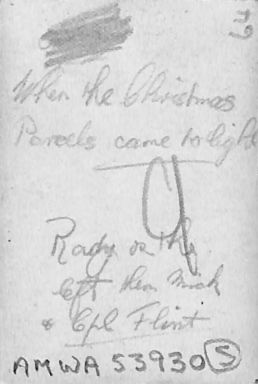 49
When the Christmas
Parcels came to light
Rady on the
left then Mick
& Cpl Flint
AMWA 53930 S